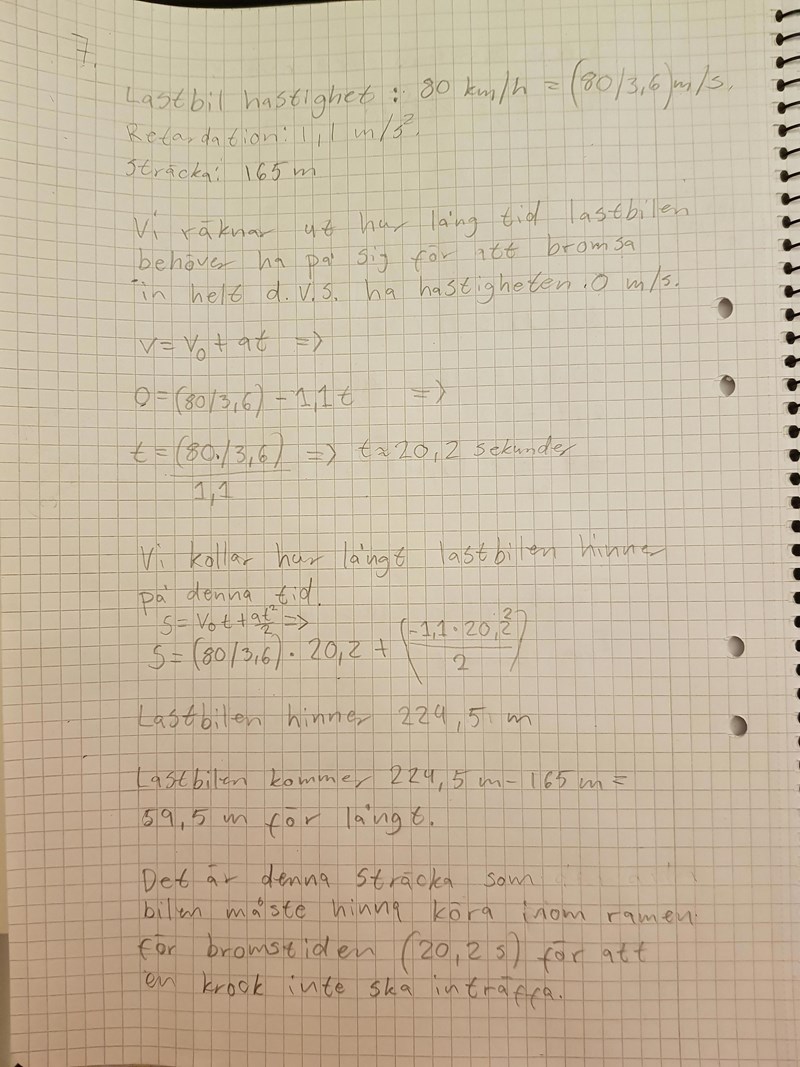 7.
Lastbil hastighet: 80 km/h = (80/3,6)m/s.
Retardation: 1,1 m/s².
Sträcka: 165 m
Vi räknar ut hur lång tid lastbilen
behöver ha på sig för att bromsa
in helt d.v.s. ha hastigheten 0 m/s.
v = v₀ + at =>
0 = (80/3,6) - 1,1t =>
t = (80/3,6)/1,1 => t ≈ 20,2 sekunder
Vi kollar hur långt lastbilen hinner
på denna tid.
s = v₀t + at²/2 =>
S = (80/3,6) · 20,2 + (-1,1 · 20,2²/2)
Lastbilen hinner 224,5 m
Lastbilen kommer 224,5 m - 165 m =
59,5 m för långt.
Det är denna sträcka som
bilen måste hinna köra inom ramen
för bromstiden (20,2 s) för att
en krock inte ska inträffa.